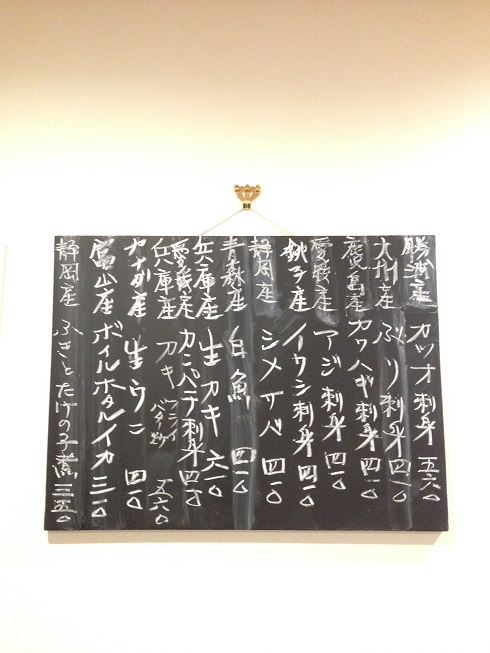 勝浦産 カツオ刺身 五六〇
ぶり刺身 四一〇
鹿児島産 カワハギ刺身 四一〇
愛媛産 アジ刺身 四一〇
銚子産 イワシ刺身 四一〇
静岡産 シメサバ 四一〇
青森産 白魚 四一〇
兵庫産 生カキ 六一〇
愛媛産 カンパチ刺身 四一〇
兵庫産 カキ フライ バター炒 五六〇
カナダ産 生ウニ 四一〇
富山産 ボイルホタルイカ 三一〇
静岡産 ふきとたけの子煮 三五〇